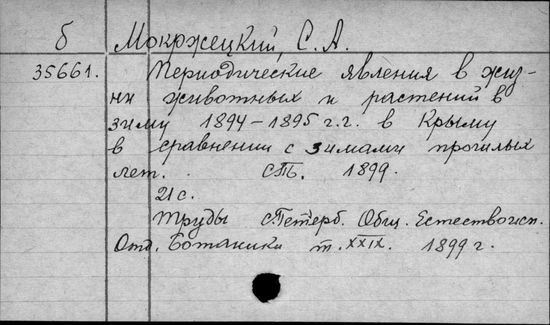 б Мокржецкий, С. А.
35661. Периодические явления в жиз-
ни животных и растений в
зиму 1894-1895 г.г. в Крыму
в сравнении с зимами прошлых
лет. СПб. 1899.
21 с.
Труды С.Петерб. Общ. Естествоисп.
Отд. Ботаники т. XXIX. 1899 г.